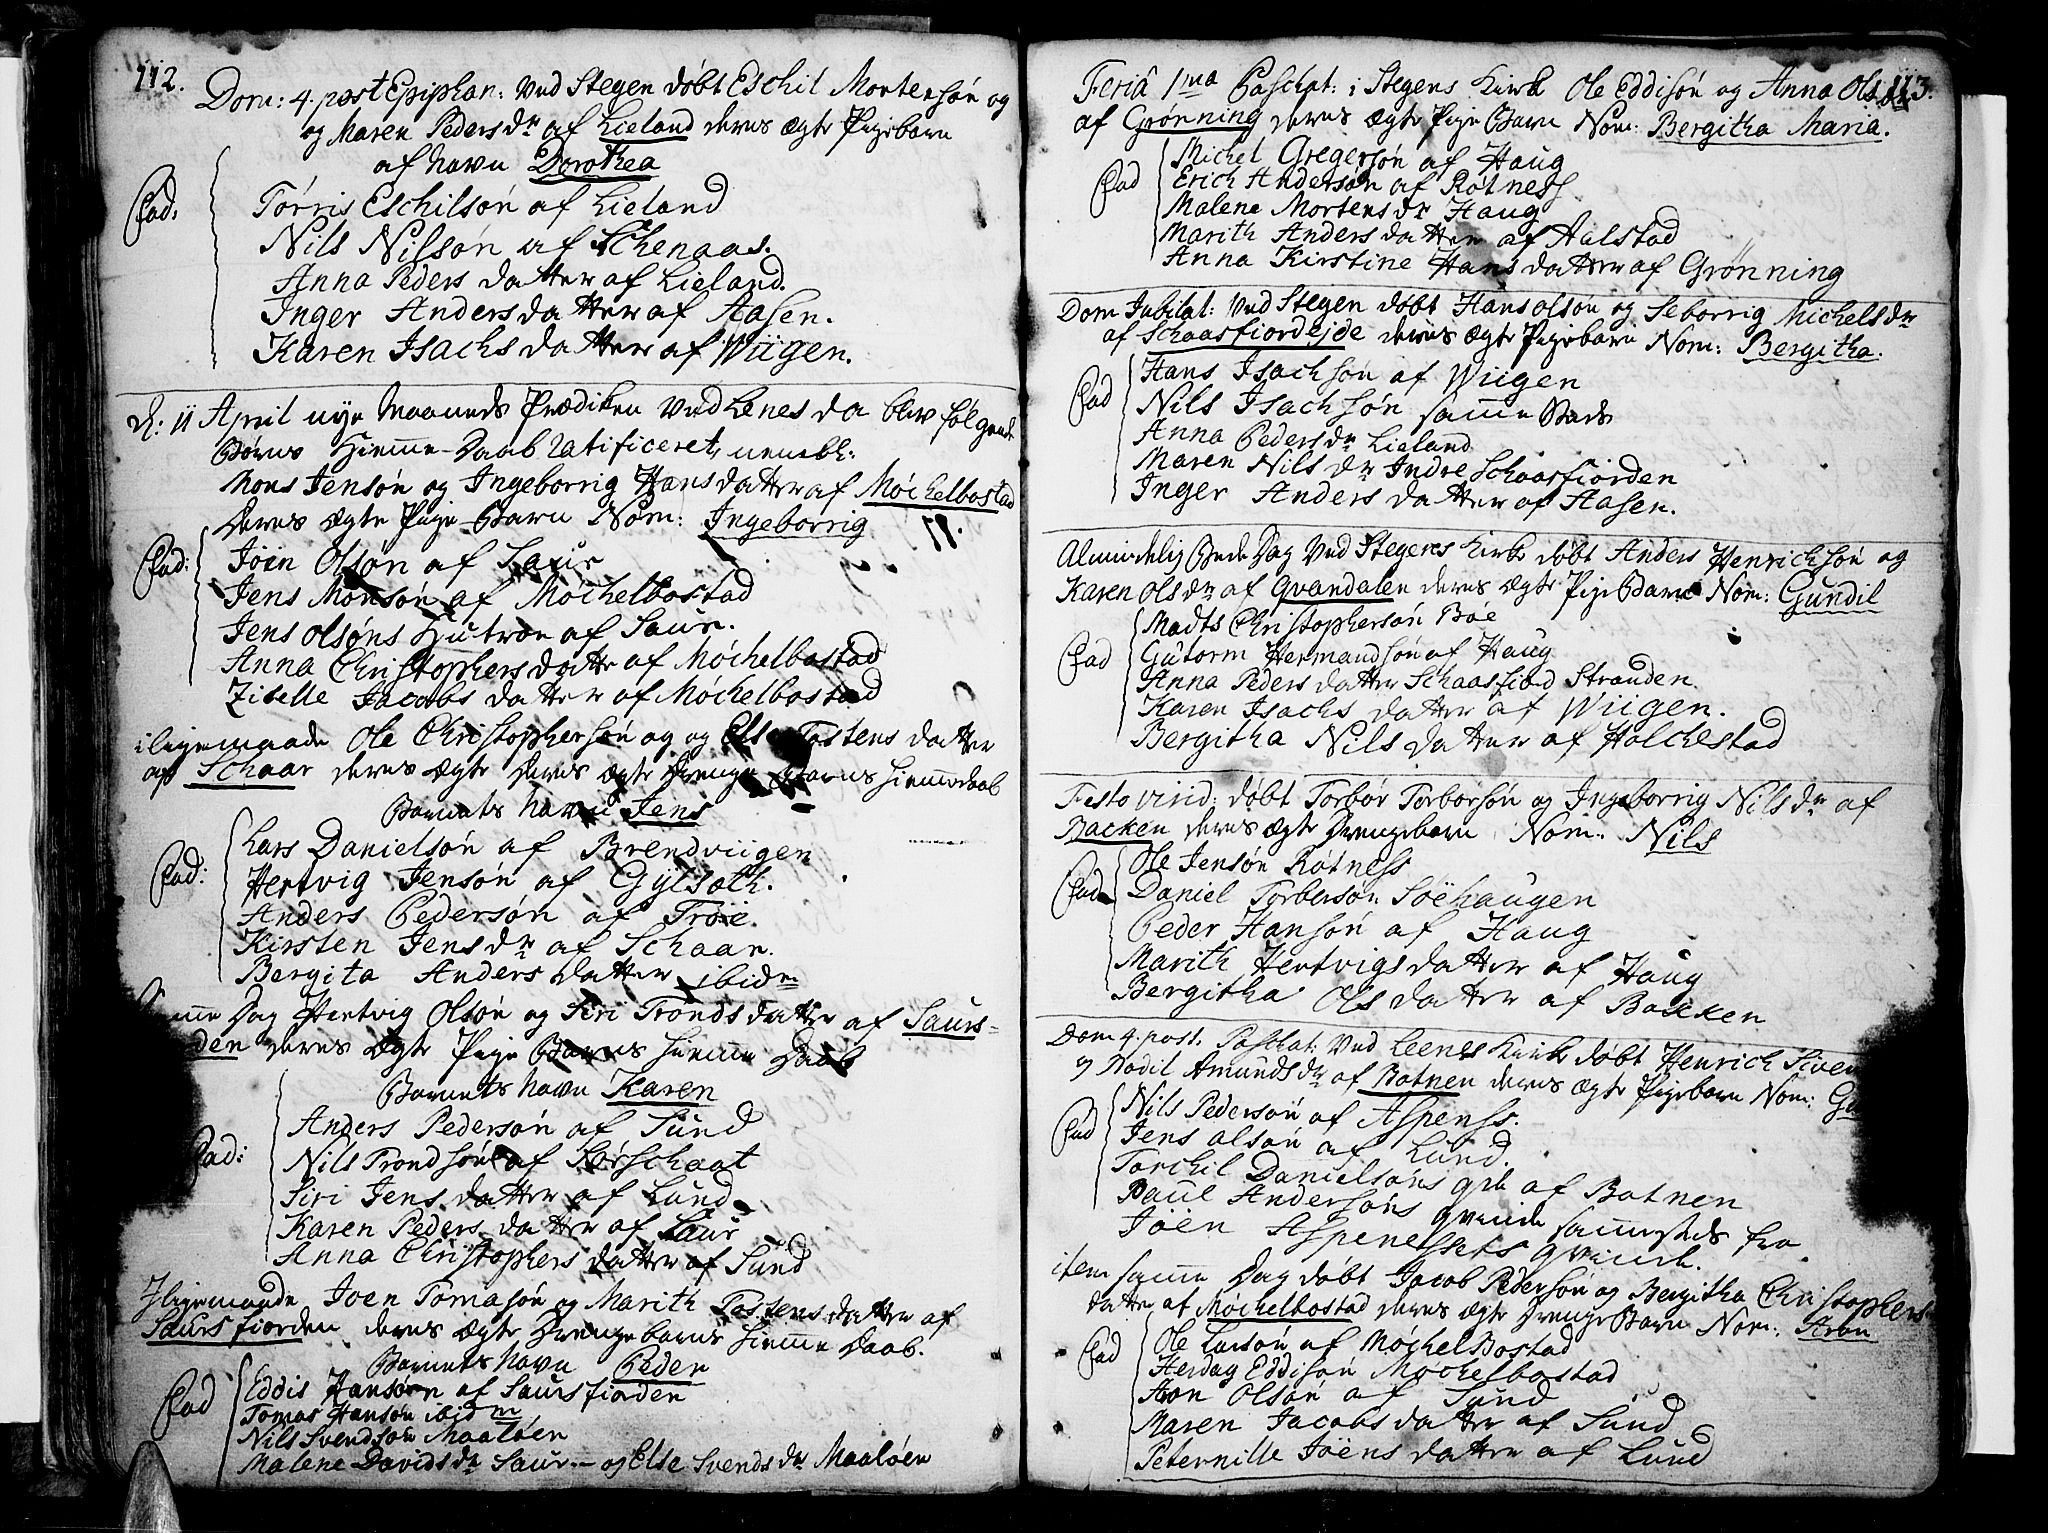 112.
Dom: 4. post Epiphan: Ved Stegen døbt Eschil Mortensøn og
og Maren Pedersdr af Lieland deres Ægte Pigebarn
af Navn Dorothea
Fad:
Tørris Eschilsøn af Lieland
Nils Nilsøn af Schenaas.
Anna Pedersdatter af Lieland.
Inger Andersdatter af Aasen.
Karen Isachsdatter af Wiigen.
d: 11 April nye Maaneds Prædiken Ved Lenes da blev følgende
Børns Hiemme-Daab ratificeret, nembl:
Mons Jensøn og Ingeborrig Hansdatter af Møchelbostad
deres Ægte Pige-Barn Nom: Ingeborrig
Fad:
Jøen Olsøn af Saur
Jens Monsøn af Møchelbostad
Jens Olsøns Hustroe af Saur.
Anna Christophersdatter af Møchelbostad
Ziselle Jacobsdatter af Møchelbostad
iligemaade Ole Christophersøn og og Else Tostensdatter
af Schaar deres Ægte deres Ægte Drenge Barns Hiemmedaab
Barnets Navn Jens
Fad:
Lars Danielsøn af Brendviigen
Hertvig Jensøn af Gylseth.
Anders Pedersøn af Trøe.
Kirsten Jensdr af Schaar.
Bergita Anders Datter ibidm
Dag Hertvig Olsøn og Siri Trondsdatter af Saurs-
den deres Ægte Pige Barns Hiemme Daab
Barnets Navn Karen
Fad:
Anders Pedersøn af Sund
Nils Trondsøn af Sørschaat
Siri Jensdatter af Lund
Karen Pedersdatter af Saur
Anna Christophersdatter af Sund
Iligemaade Joen Tomasøn og Marith Tostensdatter af
Saursfiorden deres Ægte Drengebarns Hiemme Daab.
Barnets Navn Peder
Fad
Eddis Hansøn af Saursfiorden
Tomas Hansøn ibidm
Nils Svendsøn Maaløen
Malene Davidsdr Saur - og Else Svendsdr Maaløen
113.
Feriâ 1ma Paschat: i Stegens Kirk Ole Eddisøn og Anna Olsdr
af Grønning deres Ægte Pige Barn Nom: Bergitha Maria.
Fad
Michel Gregersøn af Haug
Erich Andersøn af Røtness
Malene Mortensdr Haug
Marith Andersdatter af Halstad
Anna Kirstine Hansdatter af Grønning
Dom Jubilat: Ved Stegen døbt Hans Olsøn og Seborrig Michelsdr
af Schaasfiordejde deres Ægte Pigebarn Nom: Bergitha.
Fad
Hans Isachsøn af Wiigen
Nils Isachsøn samme Steds
Anna Pedersdr Lieland
Maren Nilsdr Indre Schaasfiorden
Inger Andersdatter af Aasen.
Almindelig Bede Dag Ved Stegens Kirk døbt Anders Henrichsøn og
Karen Olsdr af Qvandalen deres Ægte Pige Barn Nom: Gundil
Fad
Madts Christophersøn Bøe
Gutorm Hermandsøn af Haug
Anna Pedersdatter Schaasfiord Stranden.
Karen Isachsdatter af Wiigen.
Bergitha Nilsdatter af Holchestad
Festo Visid: døbt Torbør Torborsøn og Ingeborrig Nilsdr af
Backen deres Ægte Drengebarn Nom: Nils
Fad
Ole Jensøn Røtness
Daniel Torbersøn Søehaugen
Peder Hansøn af Haug
Marith Hertvigsdatter af Haug
Bergitha Olsdatter af Backen
Dom 4. post. Paschat: Ved Leenes Kirk døbt Henrich
og Bodil Amundsdr af Botnen deres Ægte Pigebarn Nom:
Fad
Nils Pedersøn af Aspenss.
Jens Olsøn af Lund.
Torchil Danielsøns qvi af Botnen
Paul Andersøns qvinde sammesteds fra
Jøen Aspenessets qvinde.
item samme Dag døbt Jacob Pedersøn og Bergitha Christophers-
datter af Møchelbostad deres Ægte Drenge Barn Nom: Aron
Fad
Ole Larsøn af Møchel Bostad
Herdag Eddisøn Møchelbostad
Aron Olsøn af Sund
Maren Jacobsdatter af Sund
Peternille Jøensdatter af Lund